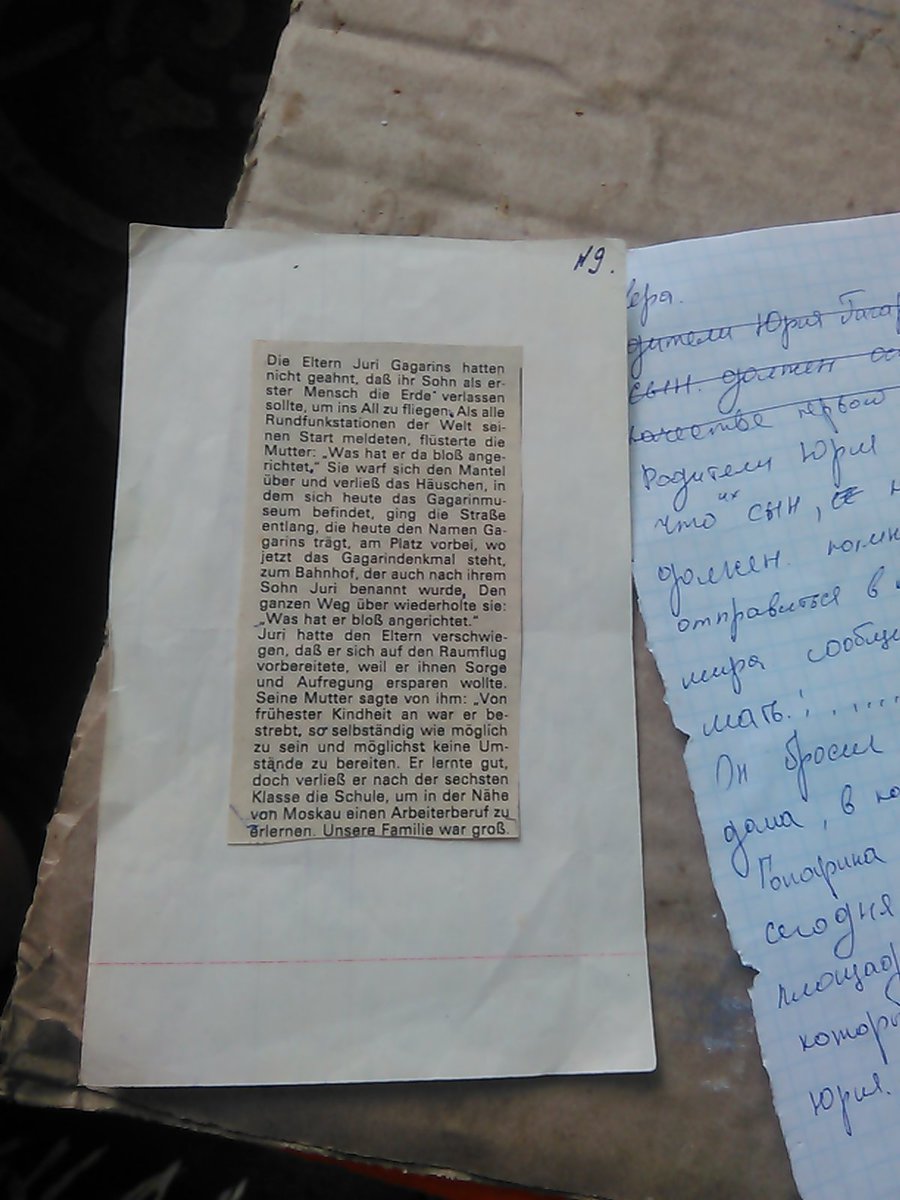 N9.
Die Eltern Juri Gagarins hatten
nicht geahnt, daß ihr Sohn als er-
ster Mensch die Erde verlassen
sollte, um ins All zu fliegen. Als alle
Rundfunkstationen der Welt sei-
nen Start meldeten, flüsterte die
Mutter: „Was hat er da bloß ange-
richtet.“ Sie warf sich den Mantel
über und verließ das Häuschen, in
dem sich heute das Gagarinmu-
seum befindet, ging die Straße
entlang, die heute den Namen Ga-
garins trägt, am Platz vorbei, wo
jetzt das Gagarindenkmal steht,
zum Bahnhof, der auch nach ihrem
Sohn Juri benannt wurde. Den
ganzen Weg über wiederholte sie:
„Was hat er bloß angerichtet.“
Juri hatte den Eltern verschwie-
gen, daß er sich auf den Raumflug
vorbereitete, weil er ihnen Sorge
und Aufregung ersparen wollte.
Seine Mutter sagte von ihm: „Von
frühester Kindheit an war er be-
strebt, so selbständig wie möglich
zu sein und möglichst keine Um-
stände zu bereiten. Er lernte gut,
doch verließ er nach der sechsten
Klasse die Schule, um in der Nähe
von Moskau einen Arbeiterberuf zu
erlernen. Unsere Familie war groß.
ера.
дители Юрия Гагар
сын. должен
качестве первой
Родители Юрия
что их сын,
должен
отправиться в
мира сообщ
мать: .....
Он бросил
дома, в ко
Гагарина
сегодня
площад
котор
Юрия.